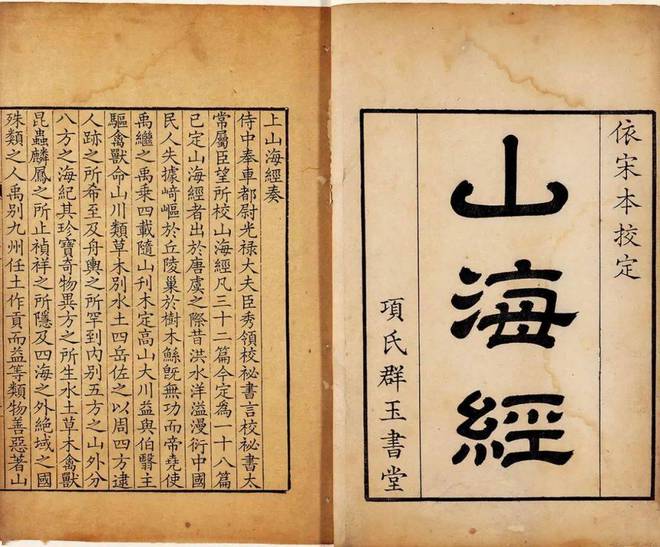 依宋本挍定
山海經
項氏群玉書堂
上山海經奏
侍中奉車都尉光禄大夫臣秀領校祕書言校祕書太
常屬臣望所校山海經凡三十二篇今定爲一十八篇
已定山海經者出於唐虞之際昔洪水洋溢漫衍中國
民人失據崎嶇於丘陵巢於樹木鯀旣無功而帝堯使
禹繼之禹乘四載隨山刊木定高山大川益與伯翳主
驅禽獸命山川類草木別水土四岳佐之以周四方逮
人跡之所希至及舟輿之所罕到内別五方之山外分
八方之海紀其珍寶奇物異方之所生水土草木禽獸
昆蟲麟鳳之所止禎祥之所隱及四海之外絶域之國
殊類之人禹別九州任土作貢而益等類物善惡著山